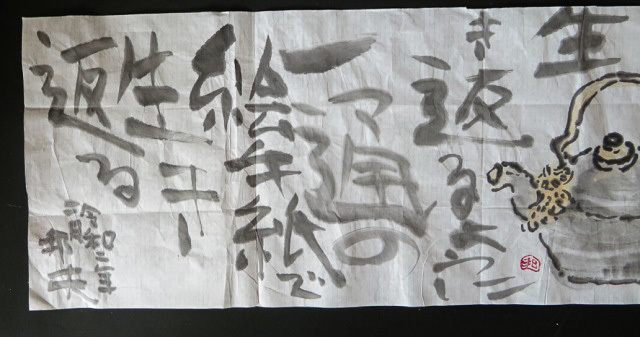 生
き
返るように
一通の
絵手紙で
生き
返る
令和二年